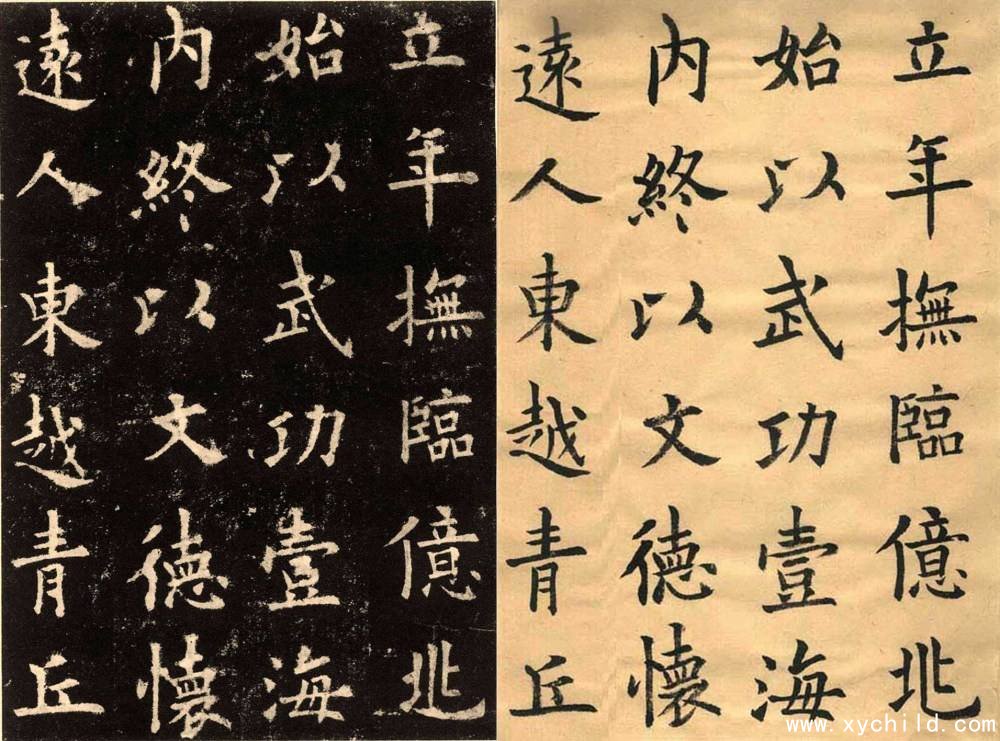 立年撫臨億兆
始以武功壹海
内終以文德懷
遠人東越青丘
立年撫臨億兆
始以武功壹海
内終以文德懷
遠人東越青丘
www.xychild.com